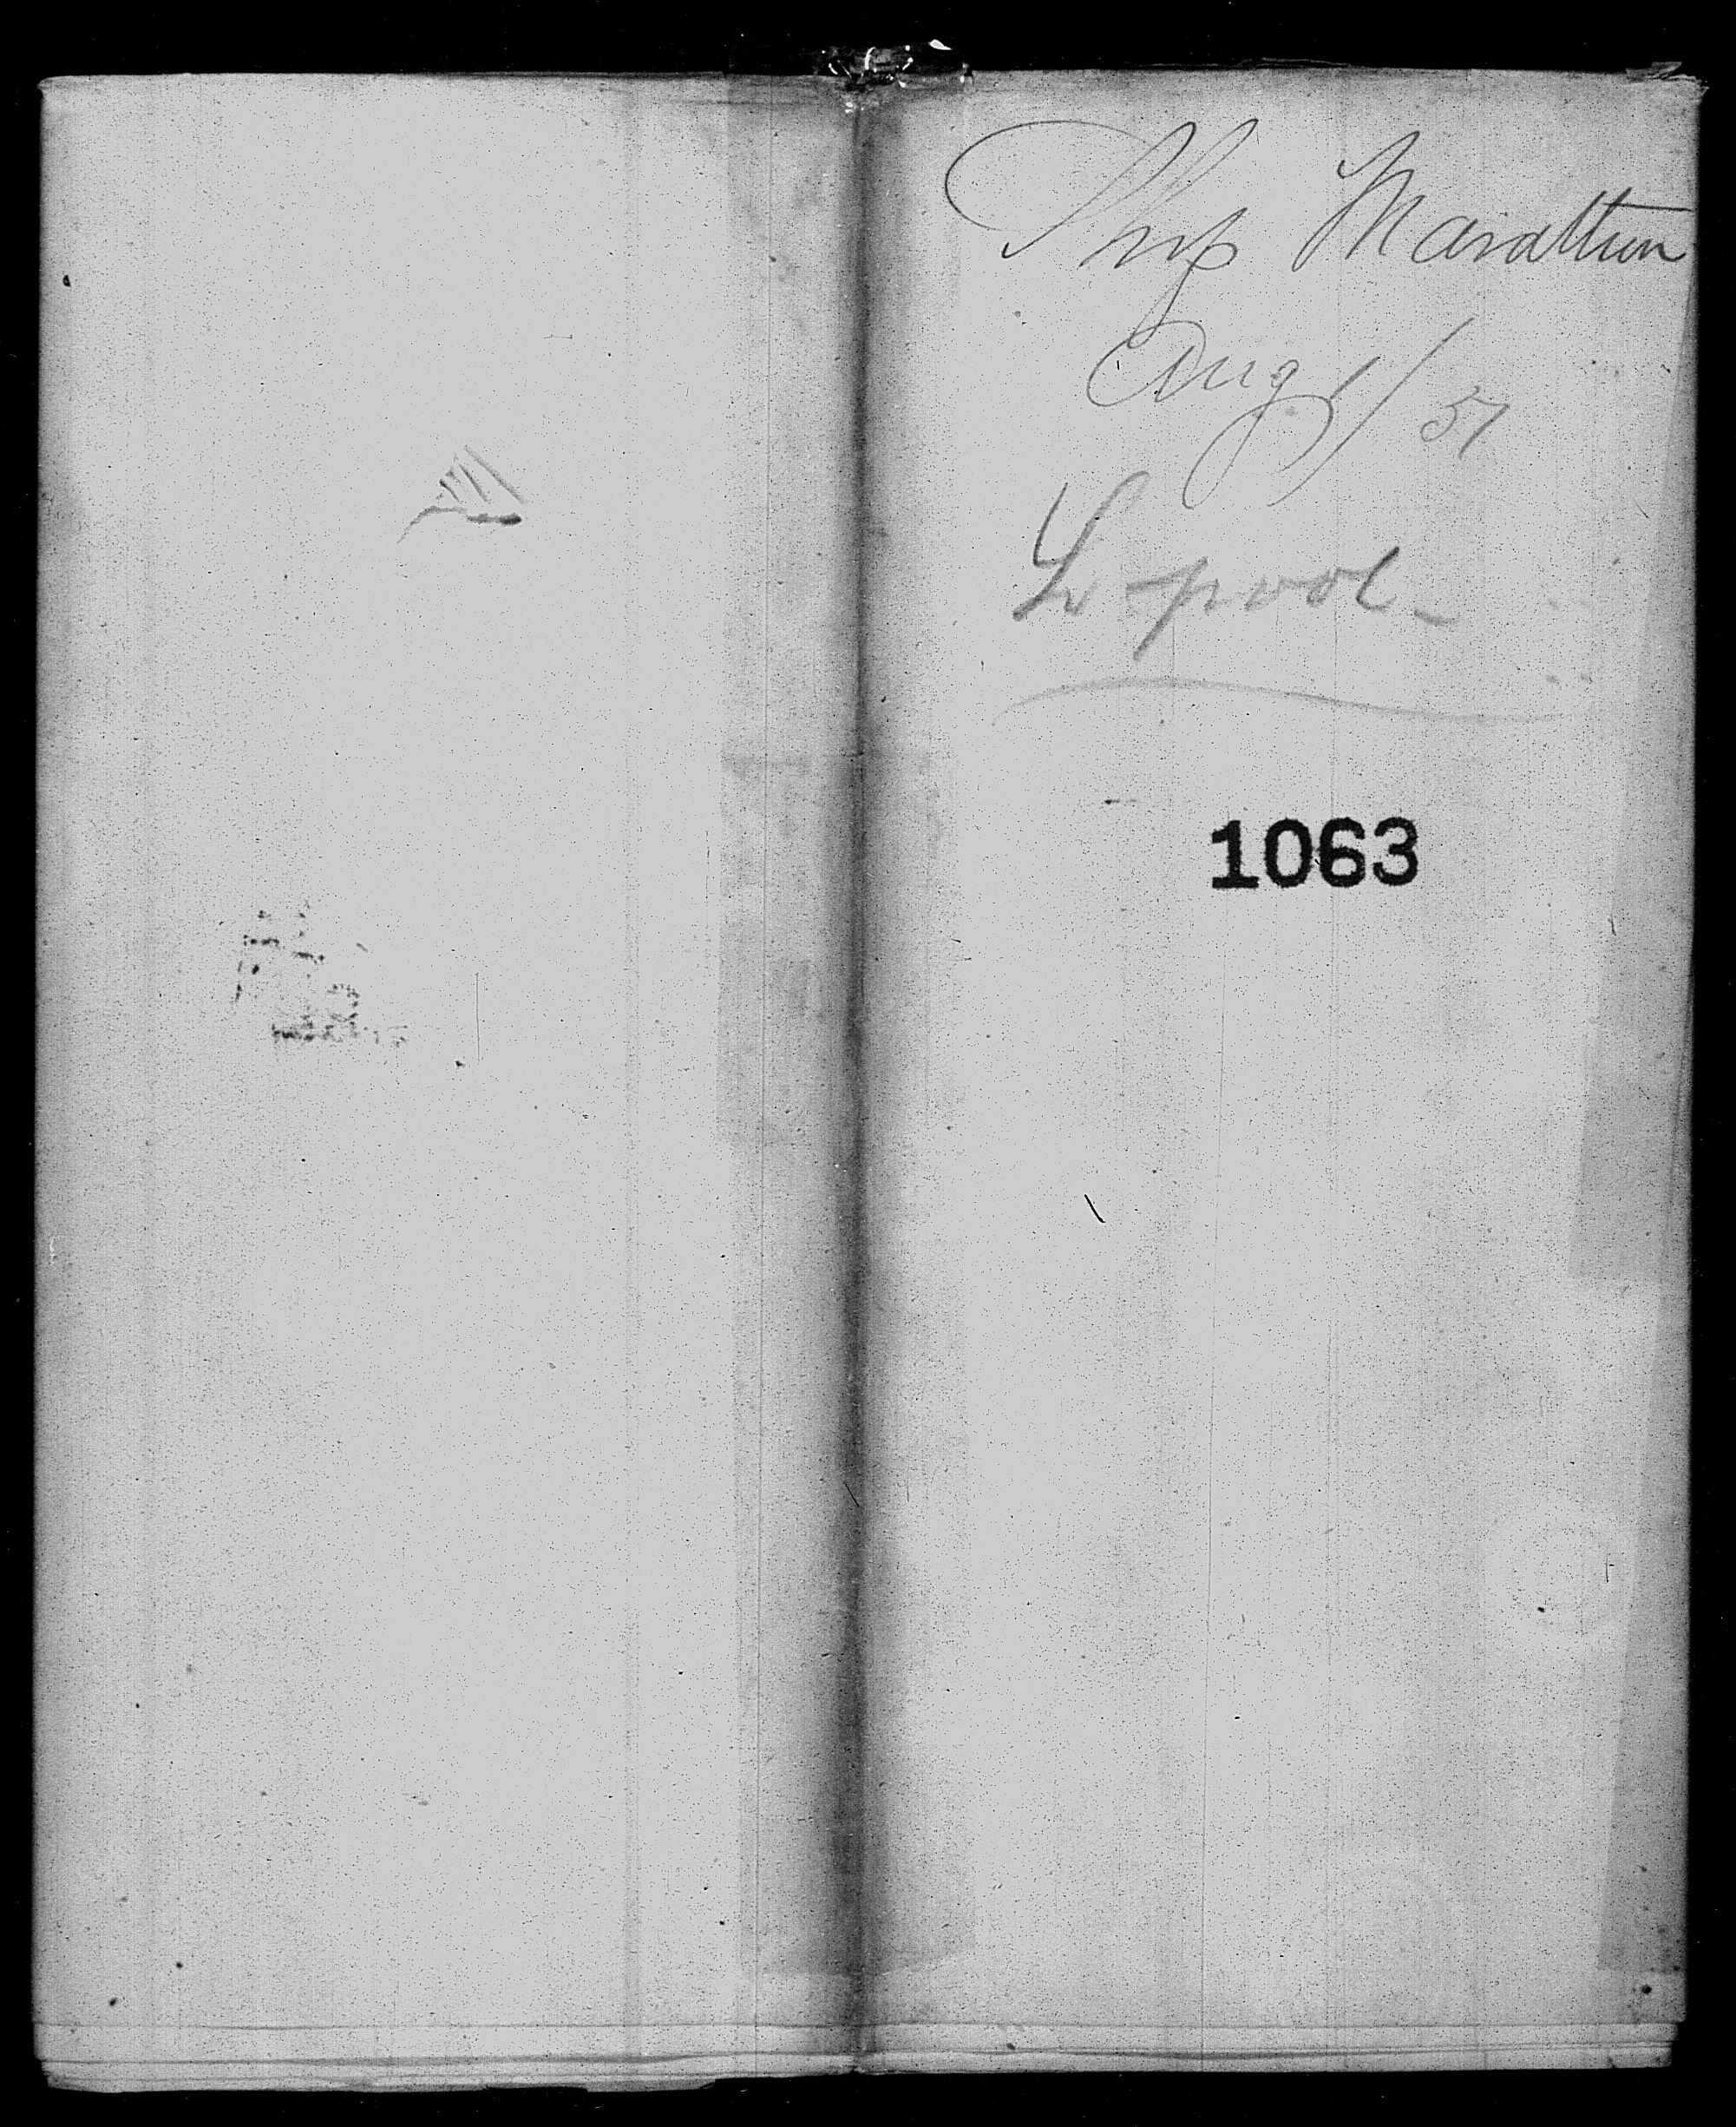 Ship Marathon
Aug 1/51
Lv-pool-
1063